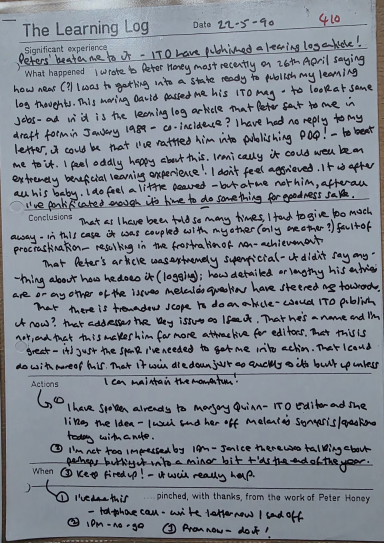 The Learning Log Date 22-5-90 410
Significant experience
Peters' beaten me to it - ITO have published a learning log article!
What happened I wrote to Peter Honey most recently on 26th April saying
how near (?) I was to getting into a state ready to publish my learning
log thoughts. This morning David passed me his ITO mag - to look at some
jobs - and in it is the learning log article that Peter sent to me in
draft form in January 1989 - co-incidence? I have had no reply to my
letter, it could be that I've rattled him into publishing PDQ! - to beat
me to it. I feel oddly happy about this. Ironically it could well be an
extremely beneficial learning experience! I don't feel aggrieved. It is after
all his baby. I do feel a little peeved - but at me not him, after all
I've pontificated enough it's time to do something for goodness sake.
Conclusions That as I have been told so many times, I tend to give too much
away - in this case it was coupled with my other (only one other?) fault of
procrastination - resulting in the frustration of non-achievement
That Peter's article was extremely superficial - it didn't say any-
-thing about how he does it (logging); how detailed or lengthy his entries
are or any other of the issues melanies questions have steered me towards.
That there is tremendous scope to do an article - would ITO publish
it now? that addresses the key issues as I see it. That he's a name and I'm
not, and that this makes him far more attractive for editors. That this is
great - it's just the spur I've needed to get me into action. That I could
do with more of this. That it will die down just as quickly as it's built up unless
I can maintain the momentum!
Actions
① I have spoken already to Margery Quinn - ITO Editor and she
likes the idea - I will send her off Melanies synopsis/questions
today with a note.
② I'm not too impressed by IPM - Janice there was talking about
perhaps putting it into a minor bit t'ds the end of the year.
When ③ Keep fired up! - it will really help.
① I've done this ....pinched, with thanks, from the work of Peter Honey
- telephone call - write letter now & send off
② IPM - no - go ③ From now - do it!